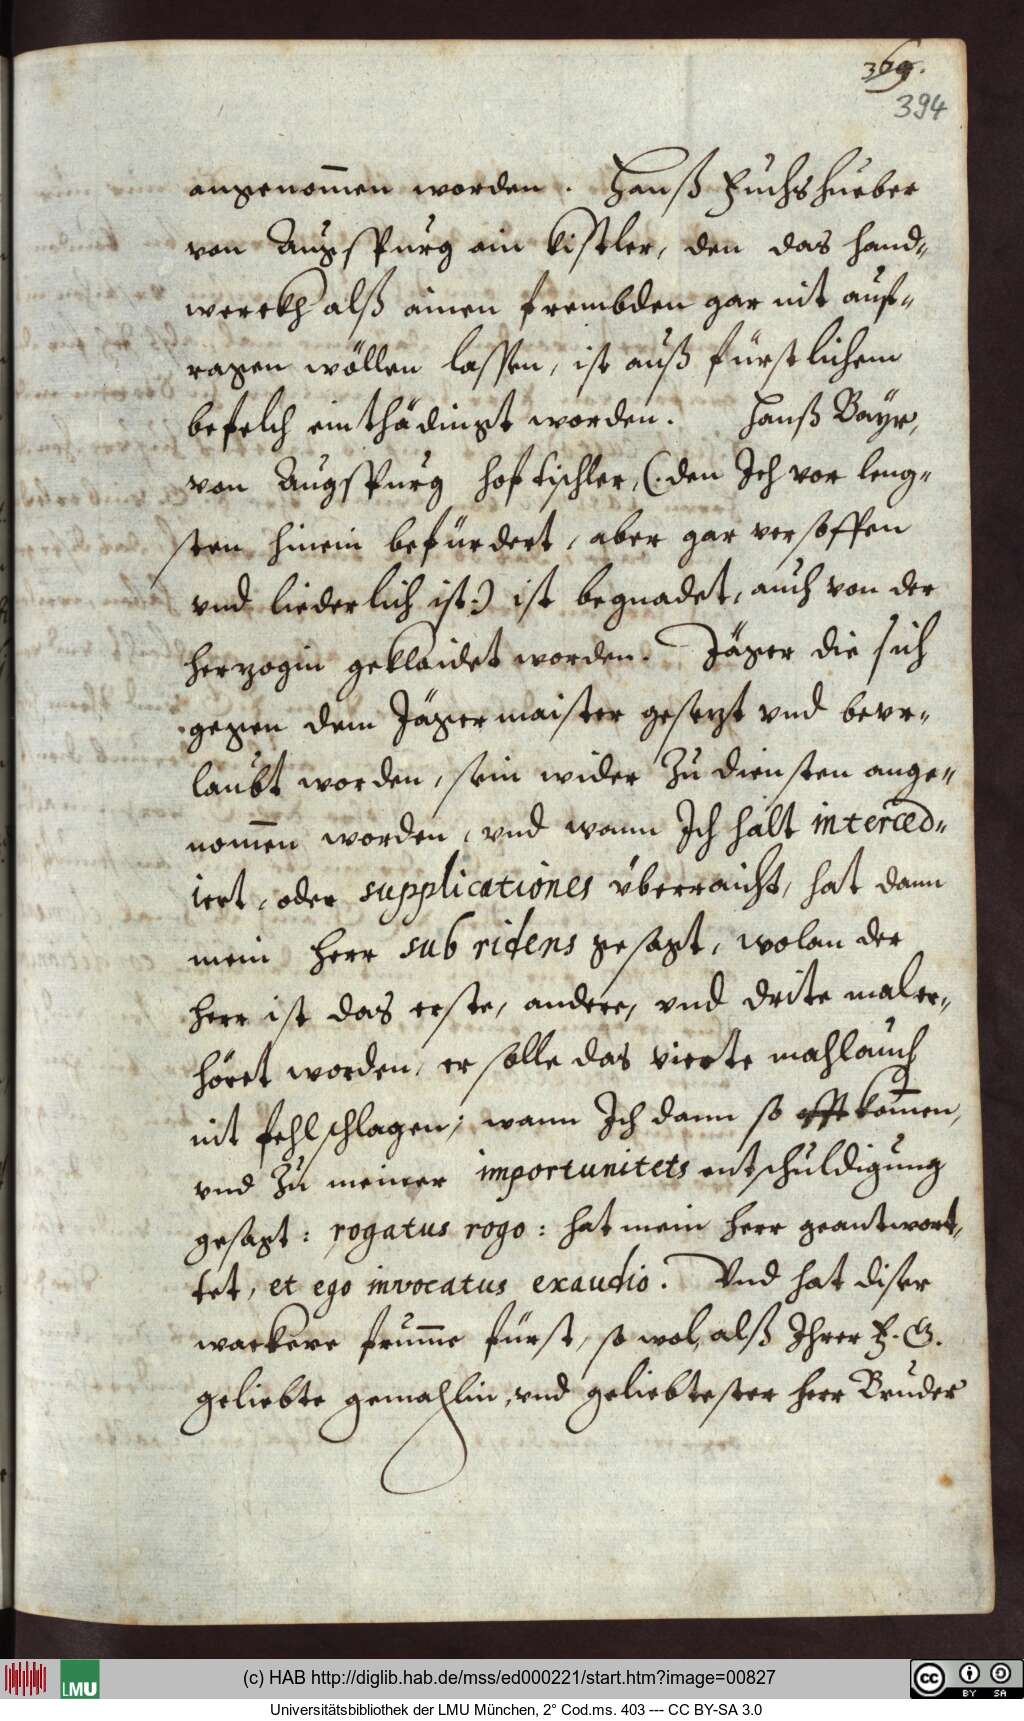 369.
394
angenom̄en worden. Hanß Fuchshueber
von Augspurg ain kistler, den das hand„
werckh alß ainen frembden gar nit auf„
ragen wöllen lassen, ist auß fürstlichem
befelch einthädingt worden. Hanß Bayr,
von Augspurg hoftischler, (: den Ich vor leng„
sten hinein befürdert, aber gar versoffen
vnd liederlich ist:) ist begnadet, auch von der
herzogin geklaidet worden. Jäger die sich
gegen dem Jägermaister gesetzt vnd bevr„
laubt worden, sein wider Zu diensten ange„
nom̄en worden, vnd wann Ich halt interced„
iert, oder supplicationes überraicht, hat dann
mein herr subridens gesagt, wolan der
herr ist das erste, andere, vnd drite mal er„
höret worden, er solle das vierte mahl auch
nit fehlschlagen; wann Ich dann so offt kom̄en,
vnd Zu meiner importunitets entschuldigung
gesagt: rogatus rogo: hat mein herr geantwort„
tet, et ego invocatus exaudio. Vnd hat diser
wackere frum̄e fürst, so wol, alß Ihrer F. G.
geliebte gemahlin, vnd geliebtester herr Bruder
(c) HAB http://diglib.hab.de/mss/ed000221/start.htm?image=00827
LMU
cc BY SA
Universitätsbibliothek der LMU München, 2° Cod.ms. 403 --- CC BY-SA 3.0